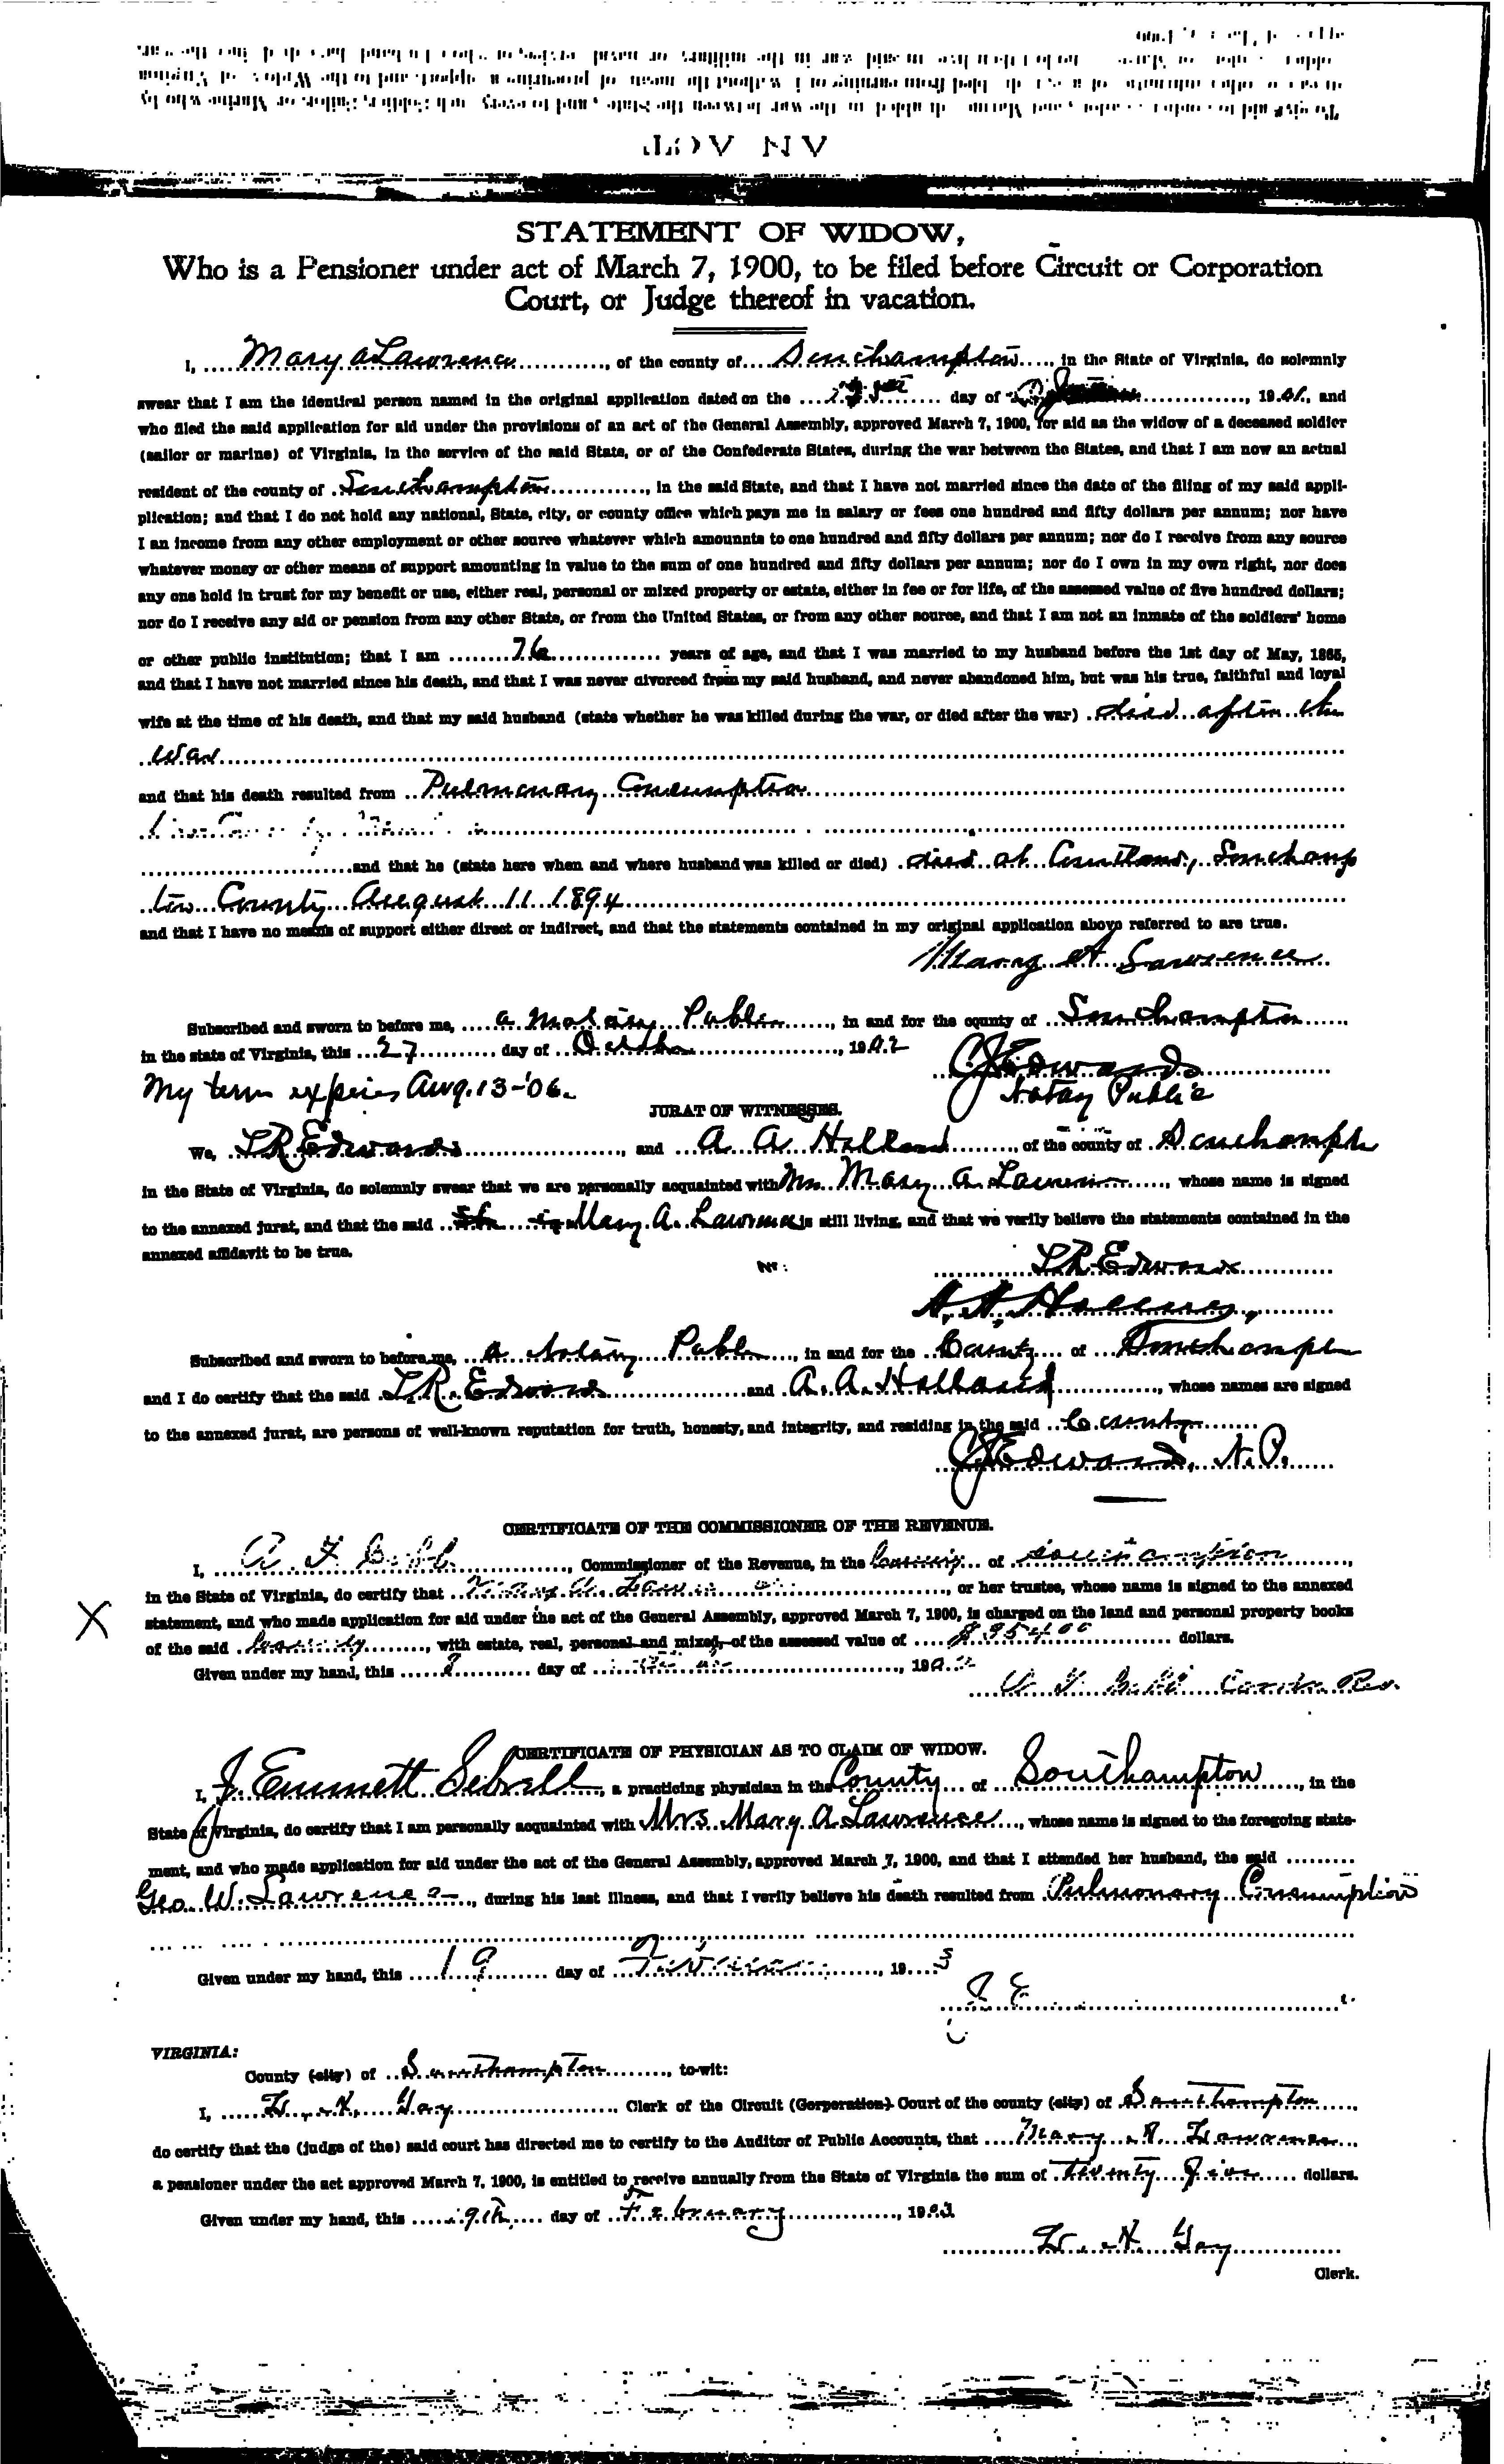 AN ACT.
STATEMENT OF WIDOW,
Who is a Pensioner under act of March 7, 1900, to be filed before Circuit or Corporation
Court, or Judge thereof in vacation.
I, Mary A Lawrence, of the county of Southampton, in the State of Virginia, do solemnly
swear that I am the identical person named in the original application dated on the day of 1901, and
who filed the said application for aid under the provisions of an act of the General Assembly, approved March 7, 1900, for aid as the widow of a deceased soldier
(sailor or marine) of Virginia, in the service of the said State, or of the Confederate States, during the war between the States, and that I am now an actual
resident of the county of Southampton, in the said State, and that I have not married since the date of the filing of my said appli-
plication; and that I do not hold any national, State, city, or county office which pays me in salary or fees one hundred and fifty dollars per annum; nor have
I an income from any other employment or other source whatever which amounnts to one hundred and fifty dollars per annum; nor do I receive from any source
whatever money or other means of support amounting in value to the sum of one hundred and fifty dollars per annum; nor do I own in my own right, nor does
any one hold in trust for my benefit or use, either real, personal or mixed property or estate, either in fee or for life, of the assessed value of five hundred dollars;
nor do I receive any aid or pension from any other State, or from the United States, or from any other source, and that I am not an inmate of the soldiers' home
or other public institution; that I am 76 years of age, and that I was married to my husband before the 1st day of May, 1865,
and that I have not married since his death, and that I was never divorced from my said husband, and never abandoned him, but was his true, faithful and loyal
wife at the time of his death, and that my said husband (state whether he was killed during the war, or died after the war) died after the
war
and that his death resulted from Pulmonary Consumption
and that he (state here when and where husband was killed or died) died at Courtland, Southamp
ton County August 11 1894
and that I have no means of support either direct or indirect, and that the statements contained in my original application above referred to are true.
Mary A Lawrence
Subscribed and sworn to before me, a Notary Public, in and for the county of Southampton
in the state of Virginia, this 27 day of October, 1902
CJ Edwards
My term expires Aug. 13-'06. Notary Public
JURAT OF WITNESSES.
We, LR Edwards, and A A Holland, of the county of Southampton
in the State of Virginia, do solemnly swear that we are personally acquainted with Mrs Mary A. Lawrence, whose name is signed
to the annexed jurat, and that the said Mary A. Lawrence is still living, and that we verily believe the statements contained in the
annexed affidavit to be true.
LR Edwards
A. A. Holland
Subscribed and sworn to before me, a Notary Public, in and for the County of Southampton
and I do certify that the said LR Edwards and A. A. Holland, whose names are signed
to the annexed jurat, are persons of well-known reputation for truth, honesty, and integrity, and residing in the said County
CJ Edwards, N.P.
CERTIFICATE OF THE COMMISSIONER OF THE REVENUE.
I, Commissioner of the Revenue, in the County of Southampton,
in the State of Virginia, do certify that Mary A. Lawrence, or her trustee, whose name is signed to the annexed
X statement, and who made application for aid under the act of the General Assembly, approved March 7, 1900, is charged on the land and personal property books
of the said County, with estate, real, personal and mixed, of the assessed value of dollars.
Given under my hand, this day of, 190
Com. Rev.
CERTIFICATE OF PHYSICIAN AS TO CLAIM OF WIDOW.
I, J. Emmett Sebrell, a practicing physician in the County of Southampton, in the
State of Virginia, do certify that I am personally acquainted with Mrs. Mary A Lawrence, whose name is signed to the foregoing state-
ment, and who made application for aid under the act of the General Assembly, approved March 7, 1900, and that I attended her husband, the said
Geo. W. Lawrence, during his last illness, and that I verily believe his death resulted from Pulmonary Consumption
Given under my hand, this 19 day of, 19 3
VIRGINIA:
County (city) of Southampton, to-wit:
I, Clerk of the Circuit (Corporation) Court of the county (city) of Southampton
do certify that the (judge of the) said court has directed me to certify to the Auditor of Public Accounts, that Mary A. Lawrence
a pensioner under the act approved March 7, 1900, is entitled to receive annually from the State of Virginia the sum of twenty five dollars.
Given under my hand, this day of February, 1903
Clerk.